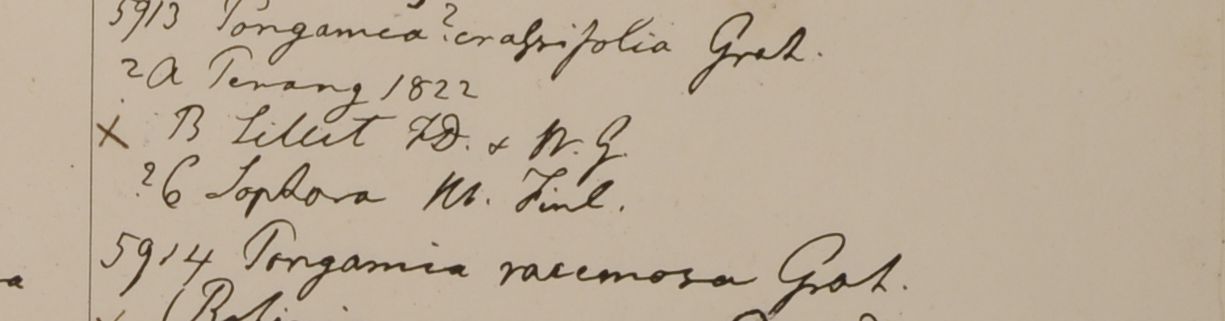 5913 Pongamia? crassifolia Grah.
?A Penang 1822
× B Sillet FD. & W. G.
?C Sophora Hb. Finl.
5914 Pongamia racemosa Grah.